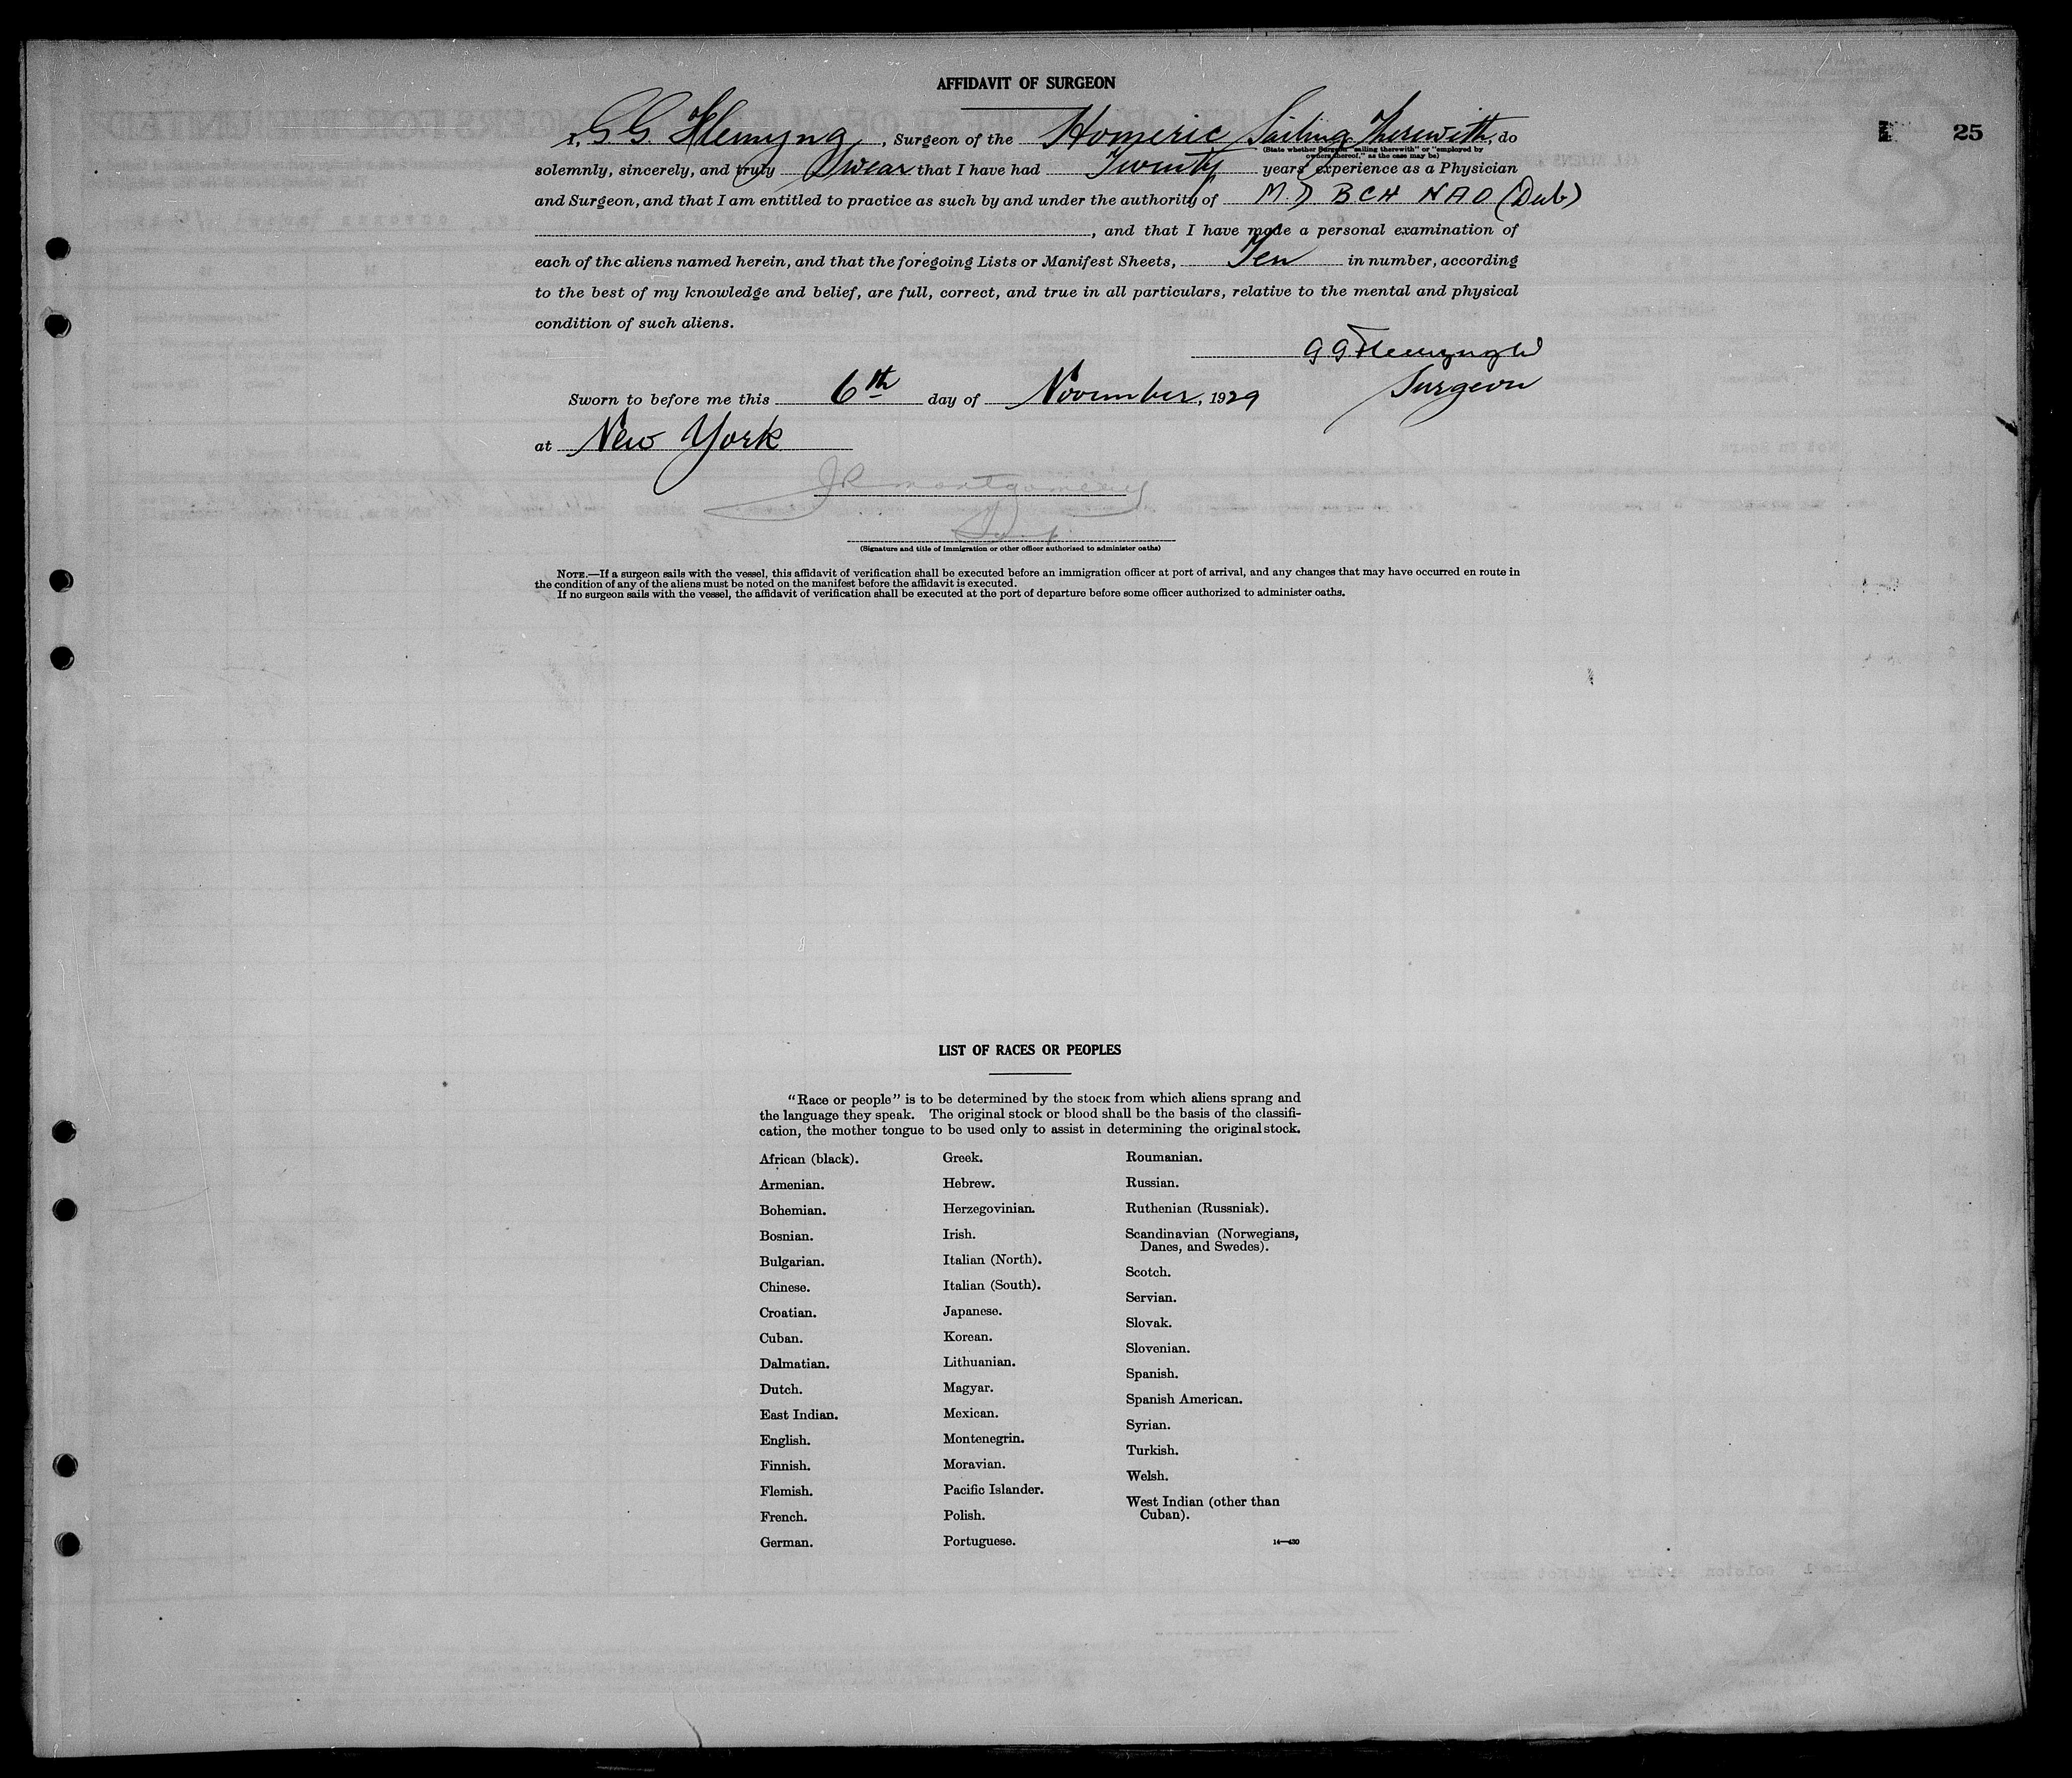 25
AFFIDAVIT OF SURGEON
I, G.G. Flemyng, Surgeon of the Homeric Sailing Therewith, do
(State whether Surgeon "sailing therewith" or "employed by
owners thereof," as the case may be)
solemnly, sincerely, and truly Swear that I have had Twenty years experience as a Physician
and Surgeon, and that I am entitled to practice as such by and under the authority of M.D BCH NAO (Dub)
, and that I have made a personal examination of
each of the aliens named herein, and that the foregoing Lists or Manifest Sheets, Ten in number, according
to the best of my knowledge and belief, are full, correct, and true in all particulars, relative to the mental and physical
condition of such aliens.
G G Flemyng
Surgeon
Sworn to before me this 6th day of November, 1929
at New York
J R Montgomery
(Signature and title of immigration or other officer authorized to administer oaths)
NOTE.—If a surgeon sails with the vessel, this affidavit of verification shall be executed before an immigration officer at port of arrival, and any changes that may have occurred en route in
the condition of any of the aliens must be noted on the manifest before the affidavit is executed.
If no surgeon sails with the vessel, the affidavit of verification shall be executed at the port of departure before some officer authorized to administer oaths.
LIST OF RACES OR PEOPLES
"Race or people" is to be determined by the stock from which aliens sprang and
the language they speak. The original stock or blood shall be the basis of the classifi-
cation, the mother tongue to be used only to assist in determining the original stock.
African (black).
Armenian.
Bohemian.
Bosnian.
Bulgarian.
Chinese.
Croatian.
Cuban.
Dalmatian.
Dutch.
East Indian.
English.
Finnish.
Flemish.
French.
German.
Greek.
Hebrew.
Herzegovinian.
Irish.
Italian (North).
Italian (South).
Japanese.
Korean.
Lithuanian.
Magyar.
Mexican.
Montenegrin.
Moravian.
Pacific Islander.
Polish.
Portuguese.
Roumanian.
Russian.
Ruthenian (Russniak).
Scandinavian (Norwegians,
Danes, and Swedes).
Scotch.
Servian.
Slovak.
Slovenian.
Spanish.
Spanish American.
Syrian.
Turkish.
Welsh.
West Indian (other than
Cuban).
14—430